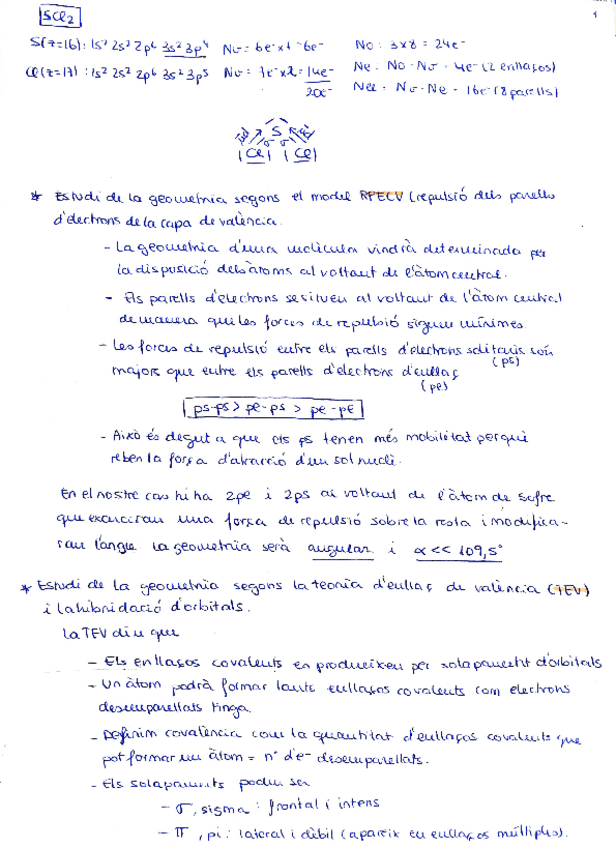 SCl2
1
S(z=16): 1s² 2s² 2p⁶ 3s² 3p⁴ Nv = 6e⁻x1 = 6e⁻ No: 3x8 = 24e⁻
Cl(z=17): 1s² 2s² 2p⁶ 3s² 3p⁵ Nv = 7e⁻x2 = 14e⁻ Ne: No-Nv = 4e⁻ (2 enllaços)
20e⁻ Nee: Nv-Ne = 16e⁻ (8 parells)
S
σ σ
|Cl| |Cl|
* Estudi de la geometria segons el model RPECV (repulsió dels parells
d'electrons de la capa de valència.
- La geometria d'una molècula vindrà determinada per
la disposició dels àtoms al voltant de l'àtom central.
- Els parells d'electrons se situen al voltant de l'àtom central
de manera que les forces de repulsió siguin mínimes.
- Les forces de repulsió entre els parells d'electrons solitaris són
(ps)
majors que entre els parells d'electrons d'enllaç
(pe)
ps-ps > pe-ps > pe-pe
- Això és degut a que els ps tenen més mobilitat perquè
reben la força d'atracció d'un sol nucli.
En el nostre cas hi ha 2pe i 2ps al voltant de l'àtom de sofre
que exerciran una força de repulsió sobre la resta i modifica-
ran l'angle. La geometria serà angular i α << 109,5°
* Estudi de la geometria segons la teoria d'enllaç de valència (TEV)
i la hibridació d'orbitals.
La TEV diu que
- Els enllaços covalents en produeixen per solapament d'orbitals
- Un àtom podrà formar tants enllaços covalents com electrons
desemparellats tinga.
- Definim covalència com la quantitat d'enllaços covalents que
pot formar un àtom = nº d'e⁻ desemparellats.
- Els solapaments poden ser
- σ, sigma: frontal i intens
- π, pi: lateral i dèbil (apareix en enllaços múltiples).